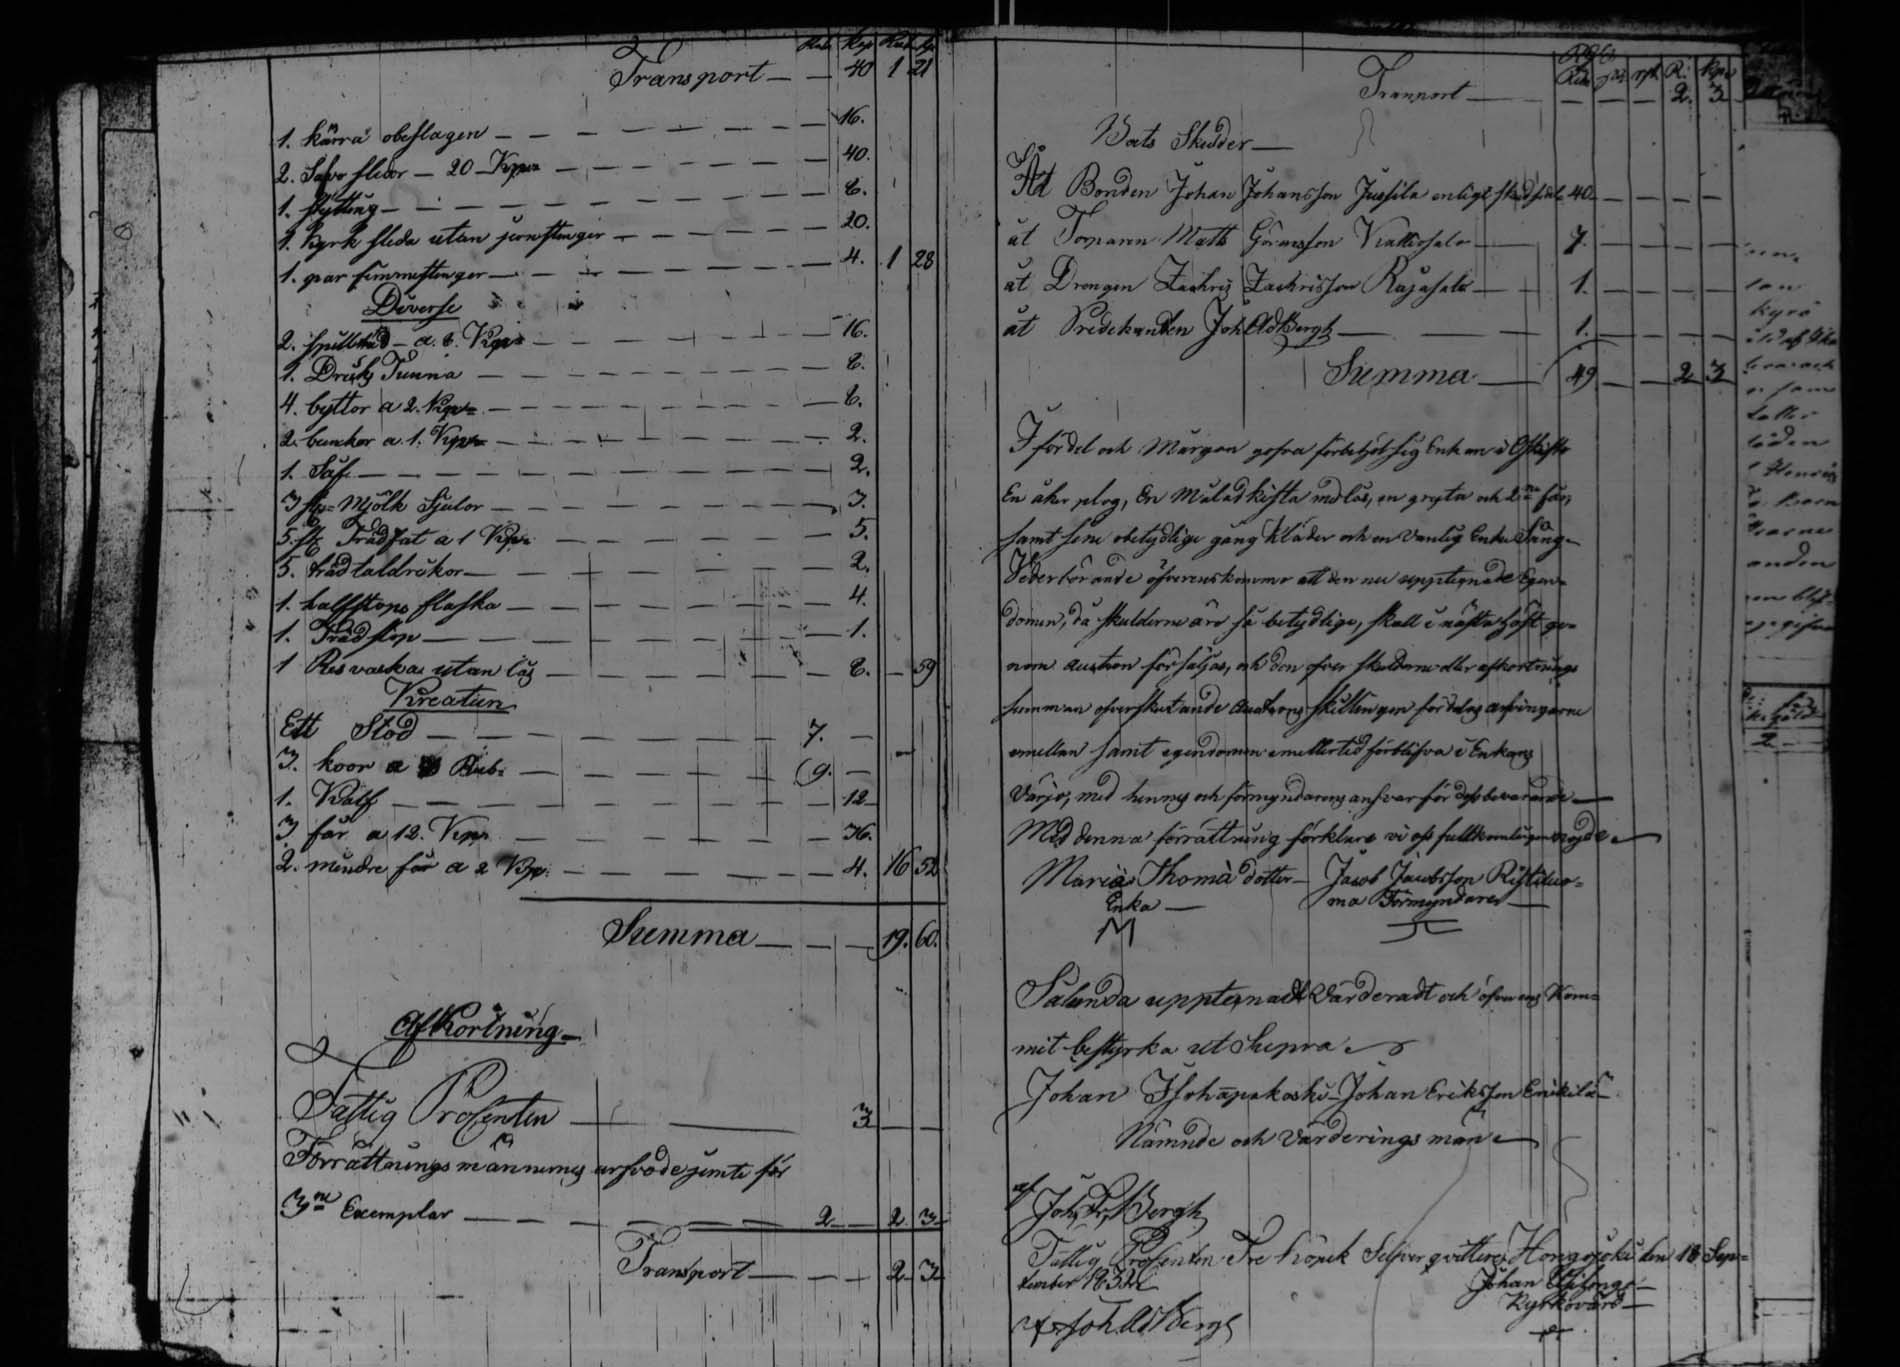 Rub Kop Rub Kp
Transport — — 40 1 21
1. kärra obeslagen — 16.
2. Sävr slädor — 20 Kop — 40.
1. skytting — 6.
1. Kyrk släda utan jernstänger — 20.
1. par simmestenger — 4. 1 28
Diverse
2. spillträd — a. 8. Kop — 16.
1. Dricks Tunna — 6.
4. byttor a 2. Kop — 8.
2. bunckor a. 1. Kop — 2.
1. Såf — 2.
3 st Mjölk Fjulor — 3.
5. st Trädfat a 1 Kop — 5.
5. träd taldrickor — 2.
1. halfstops flaska — 4.
1. Träd stop — 1.
1 Res vaska utan lås — 6. — 59
Kreatur
Ett Stod — 7. —
3. koor a 3 Rub — 9. —
1. Kalf — 12
3 får a 12. Kop — 36.
2. mindre får a 2 Kop — 4. 16 52
Summa — — — 19. 60.
Afkortning
Fattig Procenten — 3 — —
Förrättningsmännernes arfvode jemte för
3ne Exemplar — 2 — 2 3
Transport — — — 2 3
Rgs
Rdr R. Kop
Transport — 2. 3
Boets Skulder —
Åt Bonden Johan Johansson Jussila enligt skuldsedel 40 —
åt Tomann Matts Göransson Kalliosalo — 7. —
åt Drengen Zachris Zachrisson Rajasalo — 1. —
åt Predikanten Joh Ad Bergh — 1. —
Summa — 49 — — 2 3
I fördel och Morgon gofva förbehöll sig Enkan i Oskifto
En åker plog, En Målad kista med lås, en gryta och 2ne får,
samt sine obetydlige gång kläder och en vanlig Enke Säng.
Vederbörande öfverenskommo att den nu upptegnade Egen-
domen, då skulderne äro så betydlige, skall i nästa höst ge-
nom auction försäljas, och den öfver skulderne eller afkortnings
summan öfverskutande auctions skillingen fördelas arfvingarne
emellan samt egendomen emellertid förblifva i Enkans
Värjo, med hennes och förmyndarens ansvar för dess bevarande —
Med denna förrättning förklare vi oss fullkomligen nöjde
Maria Thoma dotter — Jacob Jacobsson Ristiluo-
Enka — ma Förmyndare —
Sålunda upptegnadt Värderadt och öfverens Kom-
mit bestyrka ut Supra
Johan Isohapakoski — Johan Eriksson Erickilä
Nämnde och Värderings män
af Joh Ad Bergh
Fattig Procenten Tre kopek Silfver qvitteras Hongojoki den 18 Sep-
tember 1832
Johan
Kyrkovärd —
Joh Ad Bergh